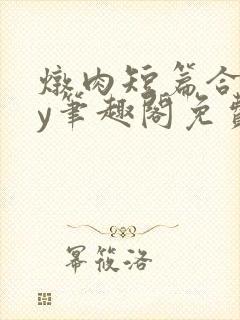 燉肉短篇合
y筆趣閣免費
幂筱洛